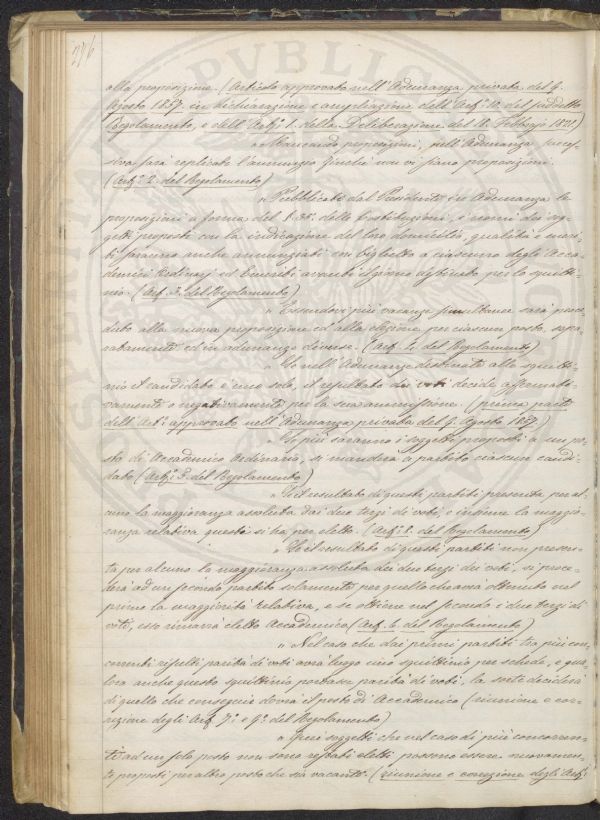 alla proposizione. (Articolo approvato nell'Adunanza privata del 9.
Agosto 1857. in dichiarazione e ampliazione dell'Art.° 11. del suddetto
Regolamento, e dell'Art.° 1. della Deliberazione del 11. Febbrajo 1821.)
" Mancando proposizioni, nell'Adunanza succes=
siva sarà replicato l'annunzio finchè non vi siano proposizioni.
(Art.° 2. del Regolamento)
" Pubblicate dal Presidente in Adunanza le
proposizioni a forma del § 38. delle Costituzioni, i nomi dei sog=
getti proposti con la indicazione del loro domicilio, qualità e meri=
ti saranno anche annunziati con biglietto a ciascuno degli Acca=
demici Ordinarj ed Emeriti avanti il giorno destinato per lo squitti=
nio. (Art. 3. del Regolamento)
" Essendovi più vacanze simultanee sarà proce=
duto alla nuova proposizione ed alla elezione per ciascun posto, sepa=
ratamente ed in adunanze diverse. (Art. 4. del Regolamento)
" Se nell'Adunanza destinata allo squitti=
nio il candidato è uno solo, il resultato dei voti decide affermati=
vamente o negativamente per la sua ammissione. (prima parte
dell'Art.° approvato nell'Adunanza privata del 9. Agosto 1857.)
" Se più saranno i soggetti proposti a un po=
sto di Accademico Ordinario, si manderà a partito ciascun candi=
dato (Art.° 5. del Regolamento)
" Se il resultato di questi partiti presenta per al=
cuno la maggioranza assoluta dei due terzi di voti e insieme la maggio=
ranza relativa questi si ha per eletto. (Art.° del Regolamento)
" Se il resultato di questi partiti non presen=
ta per alcuno la maggioranza assoluta dei due terzi dei voti, si proce=
derà ad un secondo partito solamente per quello che avrà ottenuto nel
primo la maggiorità relativa, e se ottiene nel secondo i due terzi di
voti, esso rimarrà eletto Accademico (Art. 6. del Regolamento)
" Nel caso che dai primi partiti tra più con=
correnti risulti parità di voti avrà luogo uno squittinio per schede, e qua=
lora anche questo squittinio portasse parità di voti, la sorte deciderà
di quello che conseguir dovrà il posto di Accademico (riunione e cor=
rezione degli Art. 7.° e 9.° del Regolamento)
" Quei soggetti che nel caso di più concorren=
ti ad un solo posto non sono restati eletti possono essere nuovamen=
te proposti per altro posto che sia vacante. (riunione e correzione degli Art.i